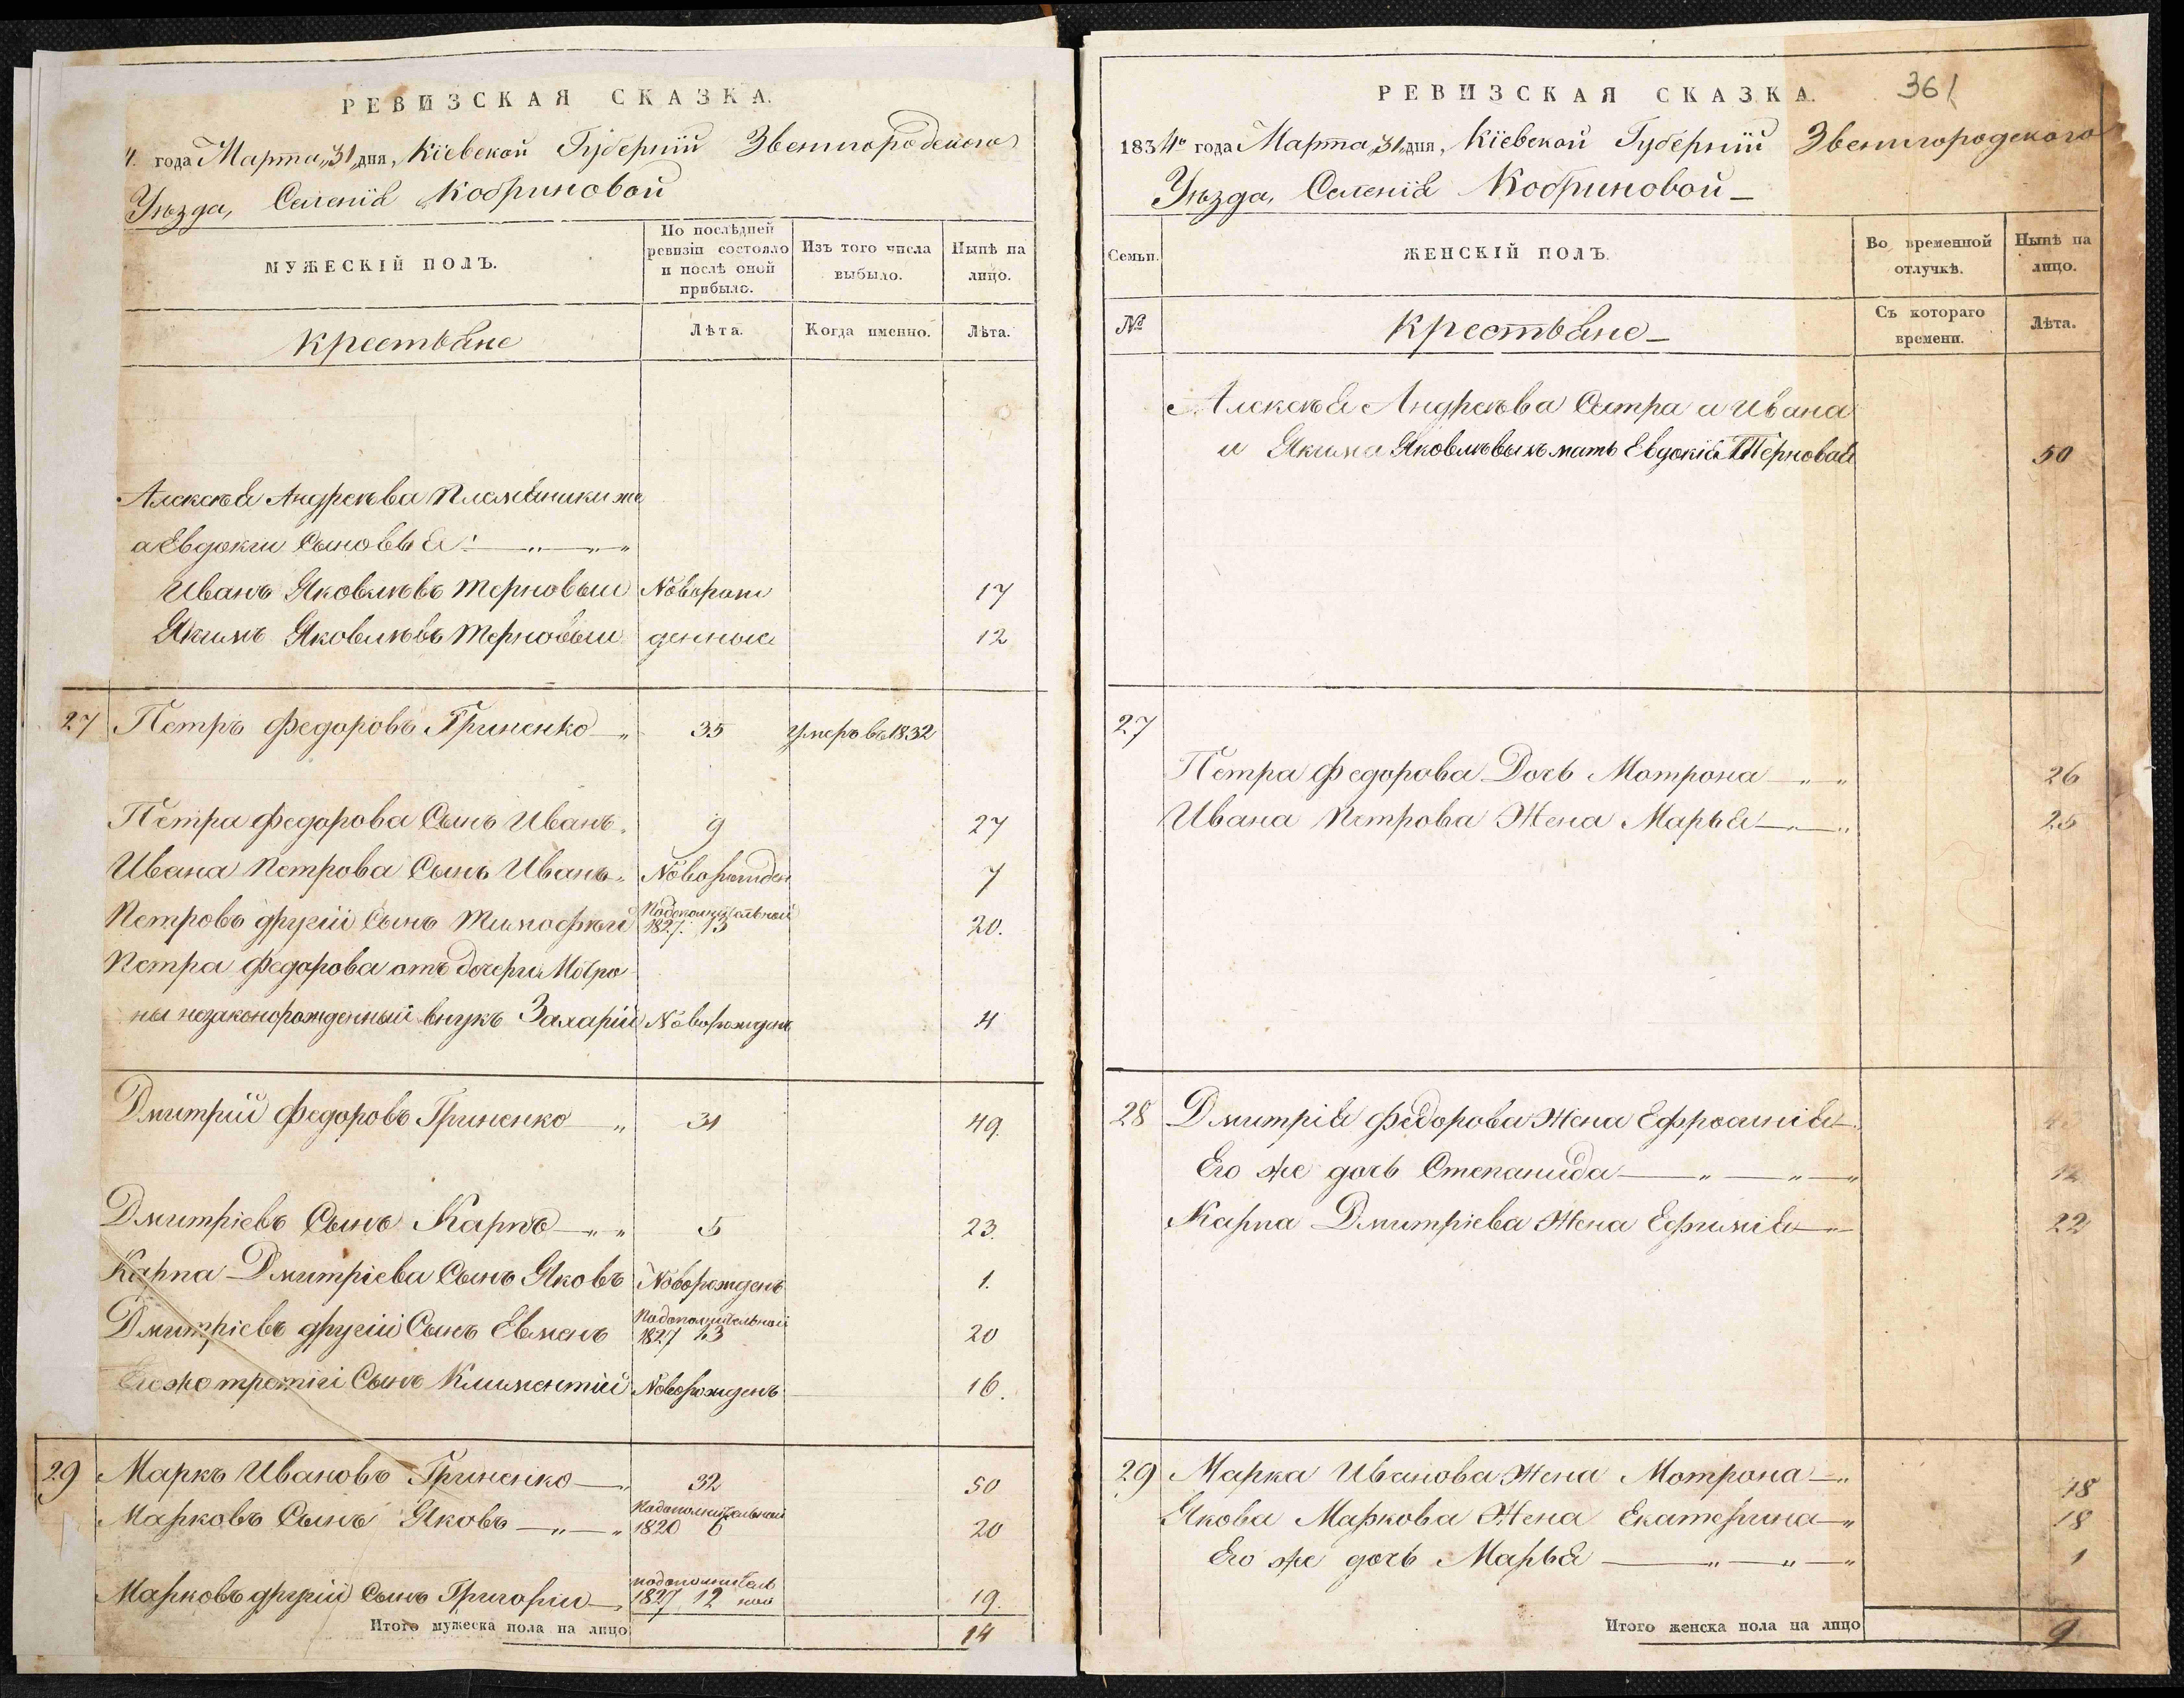 РЕВИЗСКАЯ СКАЗКА.
4. года Марта „31„ дня, Кіевской Губерніи Звенигородского
Уѣзда, Селенія Кобриновой
МУЖЕСКІЙ ПОЛЪ.
По послѣдней ревизіи состояло и послѣ оной прибыло.
Изъ того числа выбыло.
Нынѣ на лицо.
крестьяне
Лѣта.
Когда именно.
Лѣта.
Алексѣя Андреѣва племянники же
а Евдокіи Сыновья:
Иванъ Яковлѣвъ терновыи Новорож 17
Якимъ Яковлѣвъ терновыи денные 12
27 Петръ Федоровъ Гриненко 35 умеръ въ 1832
Петра Федорова Сынъ Иванъ 9 27
Ивана Петрова Сынъ Иванъ Новорожден 7
Петровъ другій Сынъ Тимофѣй Подополнительной 1827. 13 20.
Петра Федорова отъ дочери Мотро
ны незаконорожденный внукъ Захарій Новорожденъ 4
Дмитрій Федоровъ Гриненко 31 49.
Дмитріевъ Сынъ Карпъ 5 23.
Карпа Дмитріева Сынъ Яковъ Новорожденъ 1.
Дмитріевъ другій Сынъ Евменъ Подополнительной 1827 13 20
Его же третій Сынъ Климентій Новорожденъ 16.
29 Маркъ Ивановъ Гриненко 32 50
Марковъ Сынъ Яковъ Подополнительной 1820 6 20
Марковъ другій Сынъ Григорій подополнитель ной 1827 12 19.
Итого мужеска пола на лицо 14
361
РЕВИЗСКАЯ СКАЗКА.
1834го года Марта „31„ дня, Кіевской Губерніи Звенигородского
Уѣзда, Селенія Кобриновой
Семьи.
ЖЕНСКІЙ ПОЛЪ.
Во временной отлучкѣ.
Нынѣ на лицо.
№
крестьяне
Съ котораго времени.
Лѣта.
Алексѣя Андреѣва Сестра а Ивана
и Якима Яковлѣвыхъ мать Евдокія Терновая 50
27
Петра Федорова Дочь Мотрона 26
Ивана Петрова Жена Марья 25
28 Дмитрія Федорова Жена Ефросинія
Его же дочь Степанида 12
Карпа Дмитріева Жена Ефимія 22
29 Марка Иванова Жена Мотрона 48
Якова Маркова Жена Екатерина 18
Его же дочь Марья 1
Итого женска пола на лицо 9